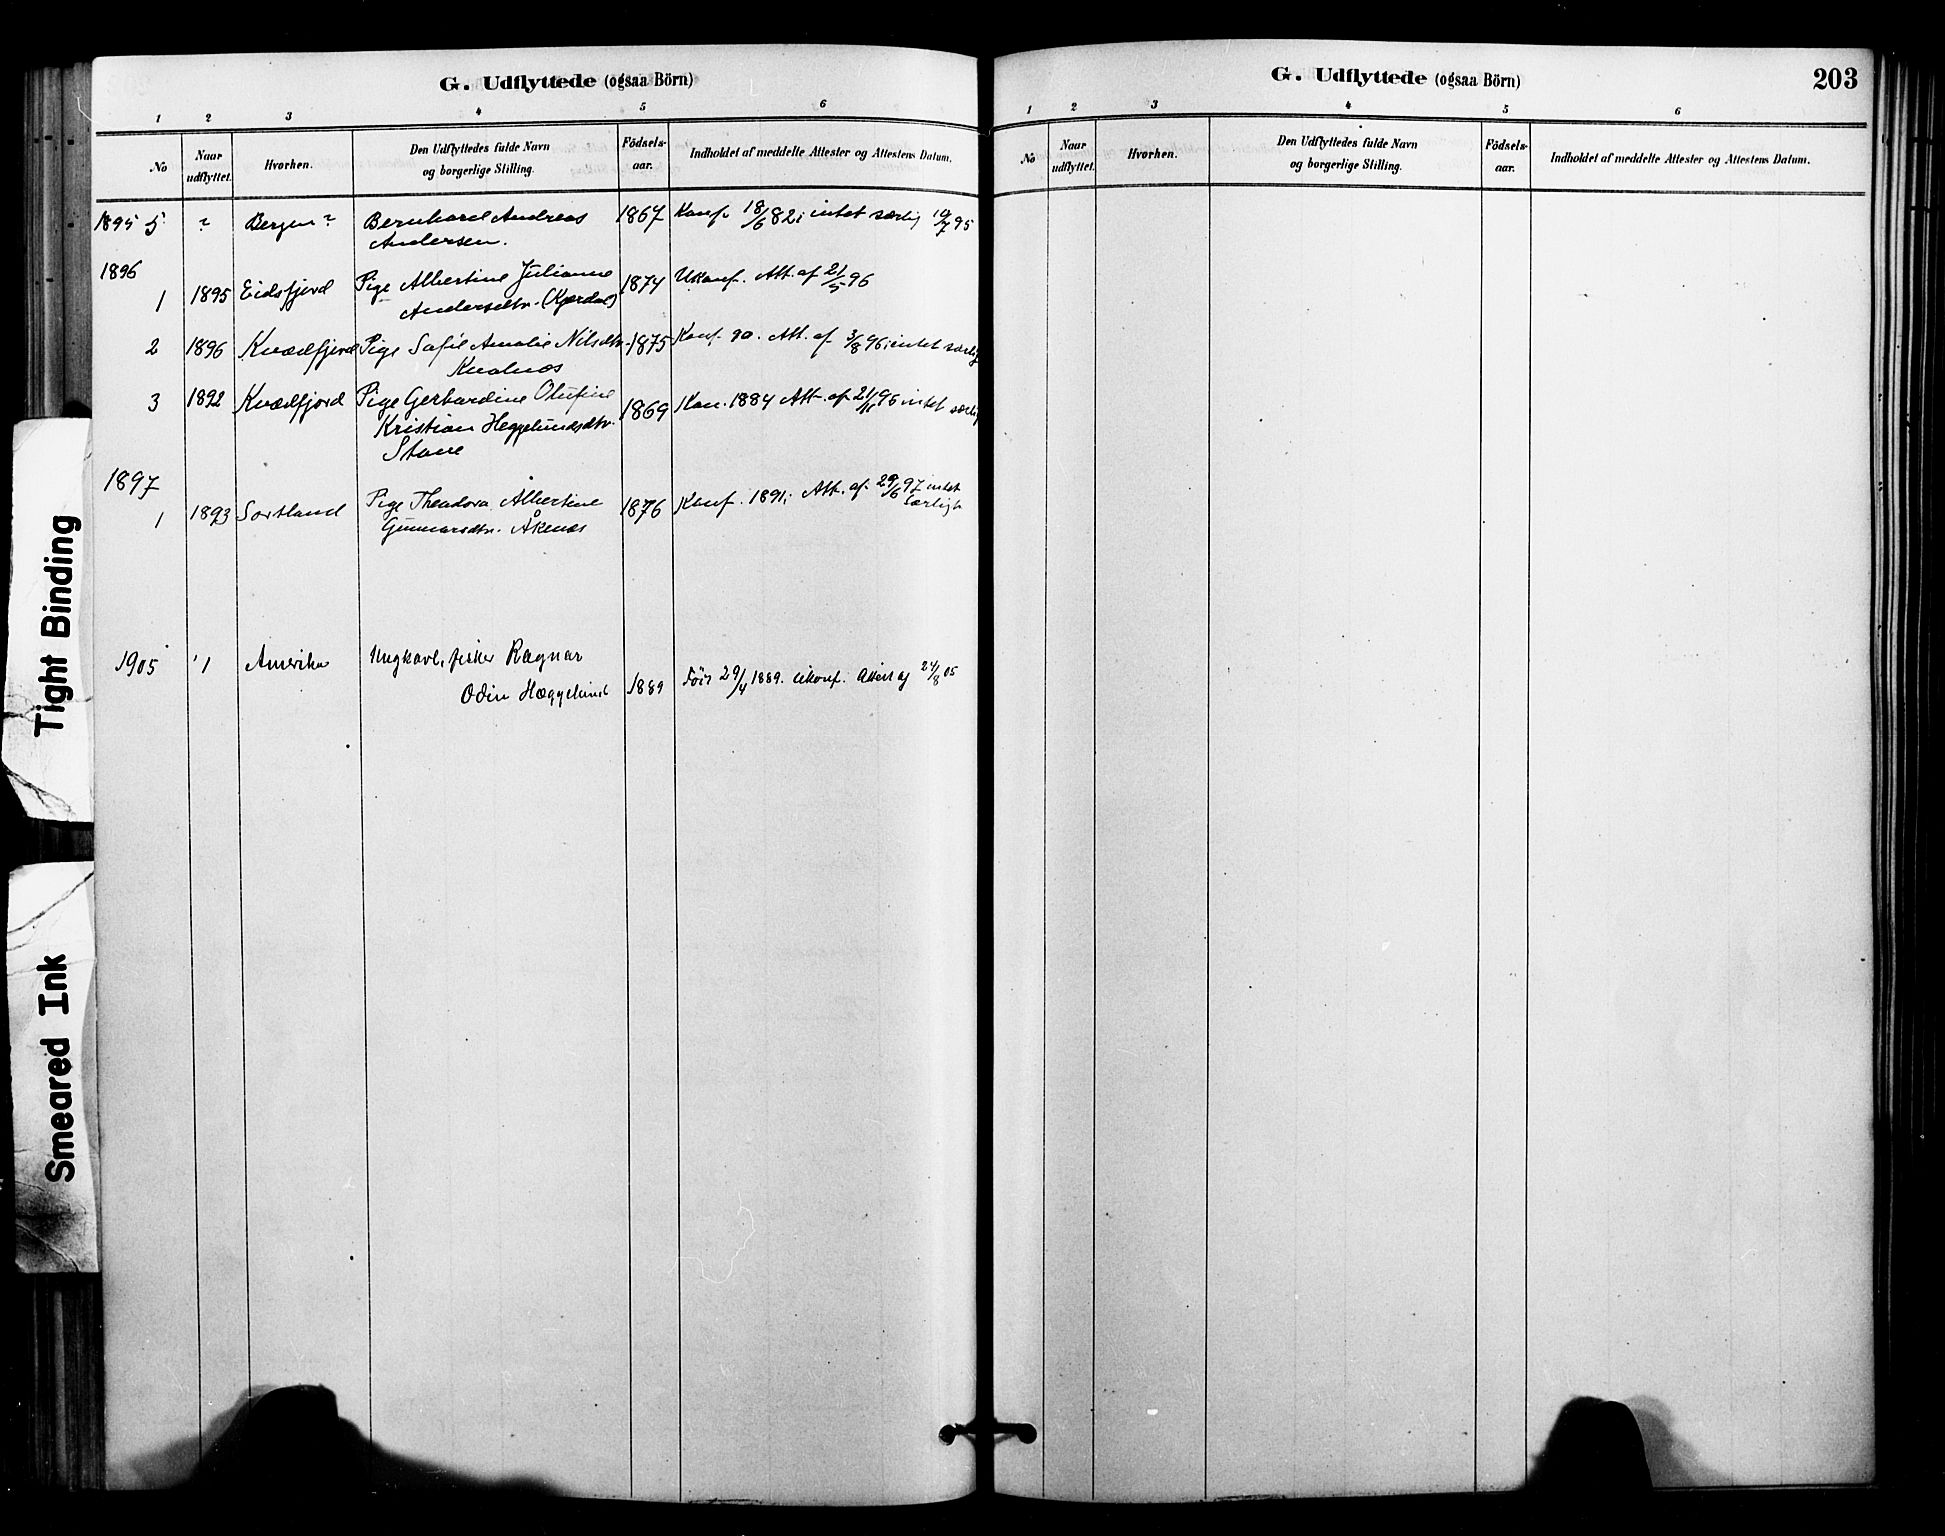 G. Udflyttede (ogsaa Börn)
1 2 3 4 5 6
No Naar udflyttet. Hvorhen. Den Udflyttedes fulde Navn og borgerlige Stilling. Födsels-aar. Indholdet af meddelte Attester og Attestens Datum.
1895 5 ? Bergen? Bernhard Andreas 1867 Konf. 18/6 82; intet særlig 19/7 95
Andersen.
1896
1 1895 Eidsfjord Pige Albertine Julianne 1874 Ukonf. Att. af 21/5 96
Andersdtr. (Kjørdal)
2 1896 Kvædfjord Pige Sofie Amalie Nilsdtr. 1875 Konf. 90. Att. af 3/8 96; intet særlig
3 1892 Kvædfjord Pige Gerhardine Olufine 1869 Kon. 1884 Att. af 21/11 96 intet særlig
Kristian Heggelundsdtr.
Stave
1897
1 1893 Sortland Pige Theodora Albertine 1876 Konf. 1891; Att. af 29/6 97 intet
særligt
Gunnarsdtr. Åkenes
1905 1 Amerika Ungkarl, fisker Ragnar
Odin Hæggelund 1889 Født 29/4 1889. Ukonf. Attest af 24/8 05
G. Udflyttede (ogsaa Börn) 203
1 2 3 4 5 6
No Naar udflyttet. Hvorhen. Den Udflyttedes fulde Navn og borgerlige Stilling. Födsels-aar. Indholdet af meddelte Attester og Attestens Datum.
Tight Binding
Smeared Ink